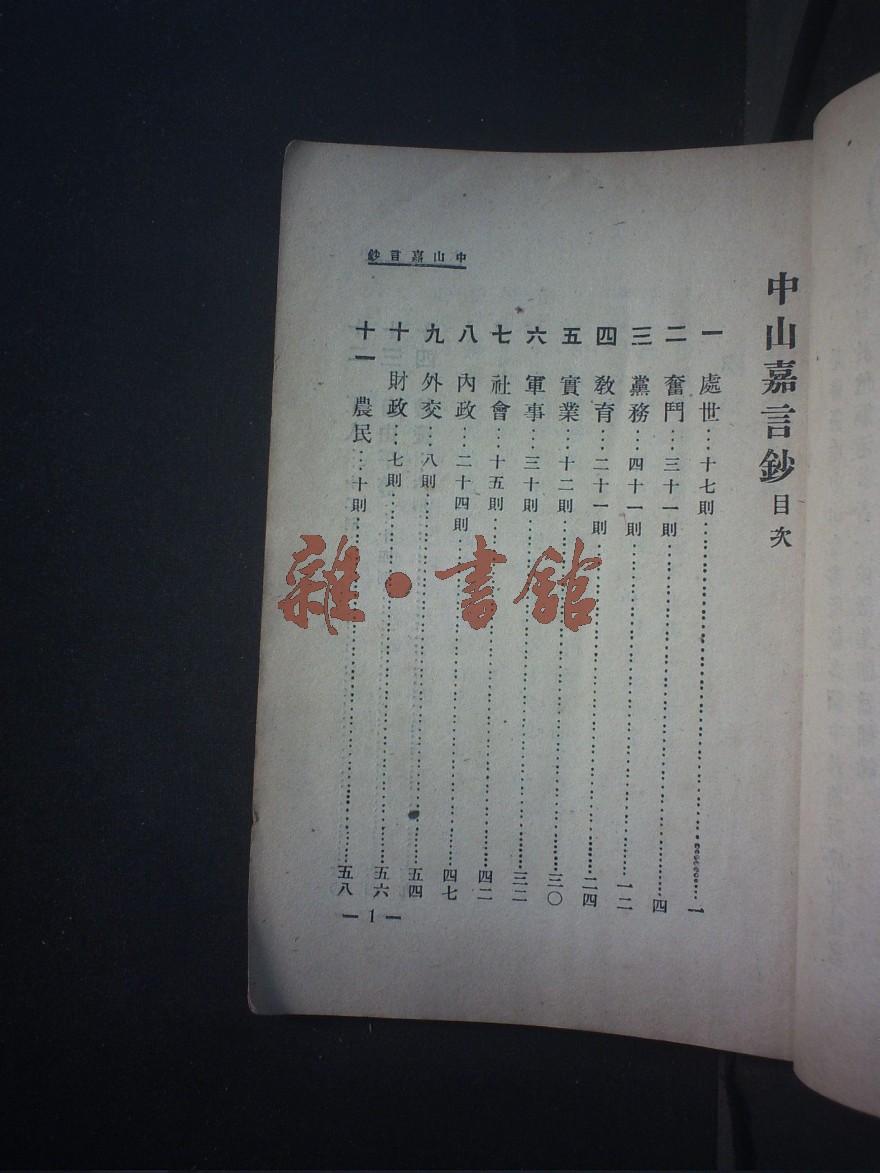 中山嘉言鈔目次
一 處世…十七則…一
二 奮鬥…三十一則…四
三 黨務…四十一則…一二
四 教育…二十一則…二四
五 實業…十二則…三〇
六 軍事…三十則…三二
七 社會…十五則…四二
八 內政…二十四則…四七
九 外交…八則…五四
十 財政…七則…五六
十一 農民…十則…五八
中山嘉言鈔
— 1 —
雜·書館